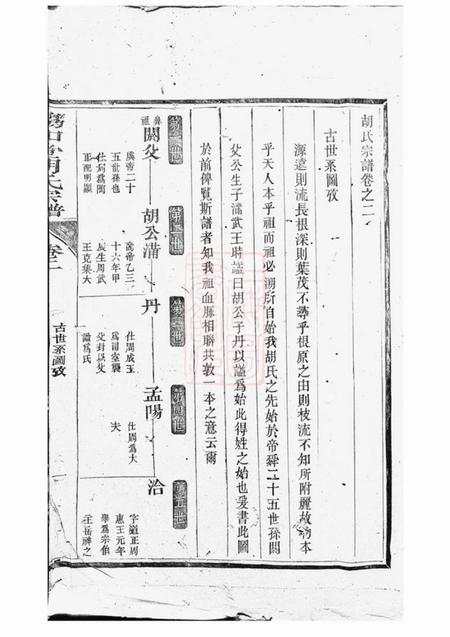 胡氏宗譜卷之二
古世系圖攷
源遠則流長根深則葉茂不尋乎根原之由則枝流不知所附麗故物本
乎天人本乎祖而祖必溯所自始我胡氏之先始於帝舜三十五世孫閼
父公生子滿武王時諡曰胡公子丹以諡爲始此得姓之始也爰書此圖
於前俾覽斯譜者知我祖血脈相聯共敦一本之意云爾
第一世
第二世
第三世
第四世
第五世
鼻祖
閼父
虞帝三十
五世孫也
仕周爲陶
正配明顯
胡公滿
虞帝乙三
十六年甲
辰生周武
王克集大
丹
仕周成王
爲司空襲
父封以父
諡爲氏
孟陽
仕周爲大
夫
洽
字道正周
惠王元年
舉爲宗伯
主岳瀆之
胡氏宗譜
卷二
古世系圖攷